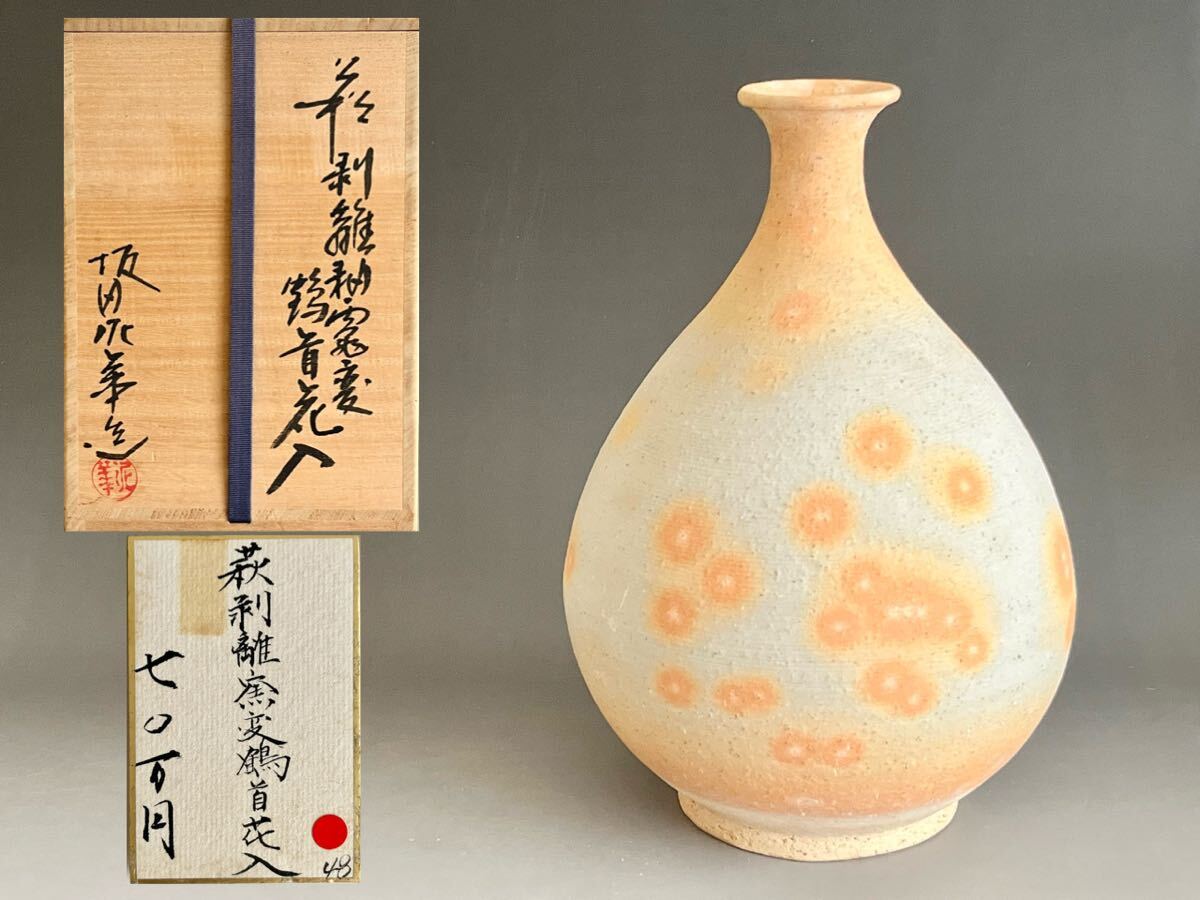 萩剥離釉窯変
鶴首花入
坂田泥華造
泥華
萩剥離窯変鶴首花入
七〇万円
48